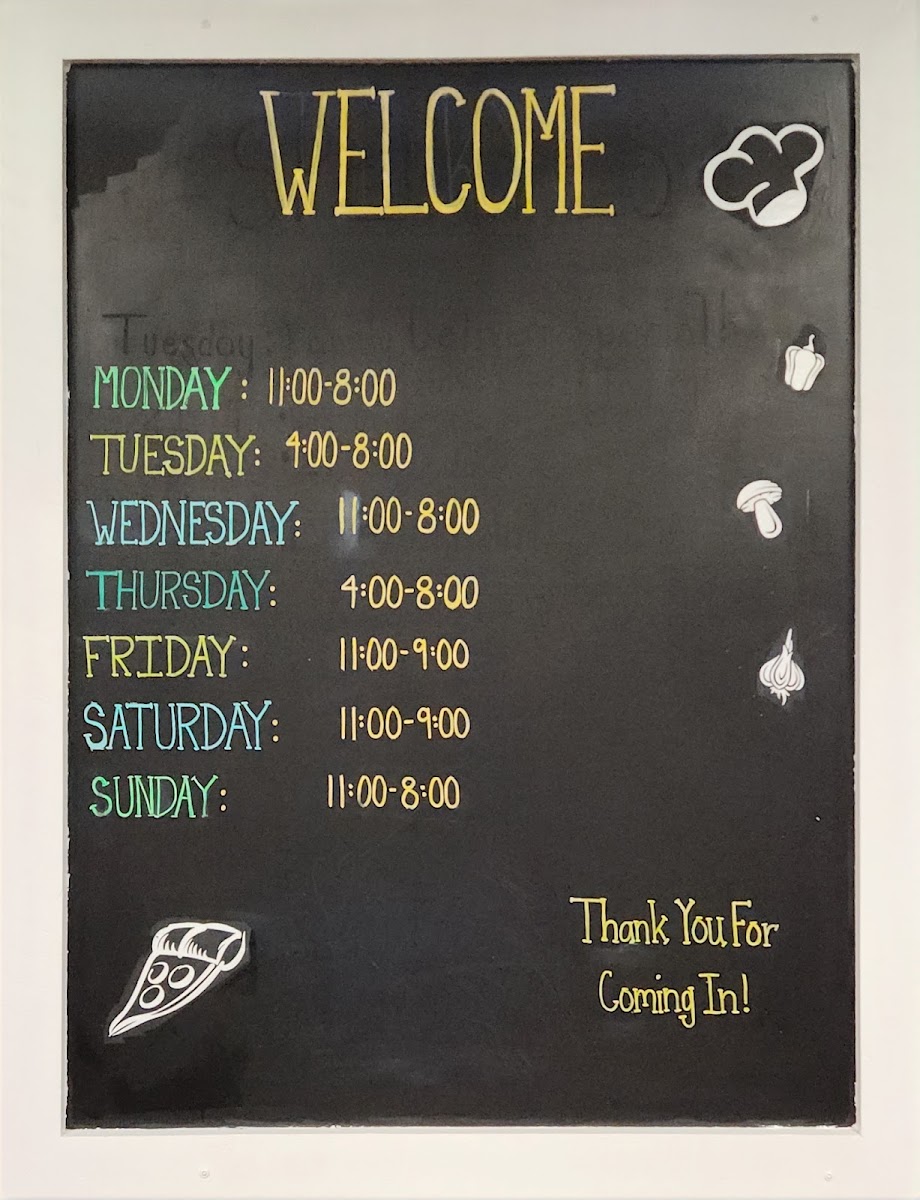 WELCOME
Tuesday:
MONDAY: 11:00-8:00
TUESDAY: 4:00-8:00
WEDNESDAY: 11:00-8:00
THURSDAY: 4:00-8:00
FRIDAY: 11:00-9:00
SATURDAY: 11:00-9:00
SUNDAY: 11:00-8:00
Thank You For
Coming In!